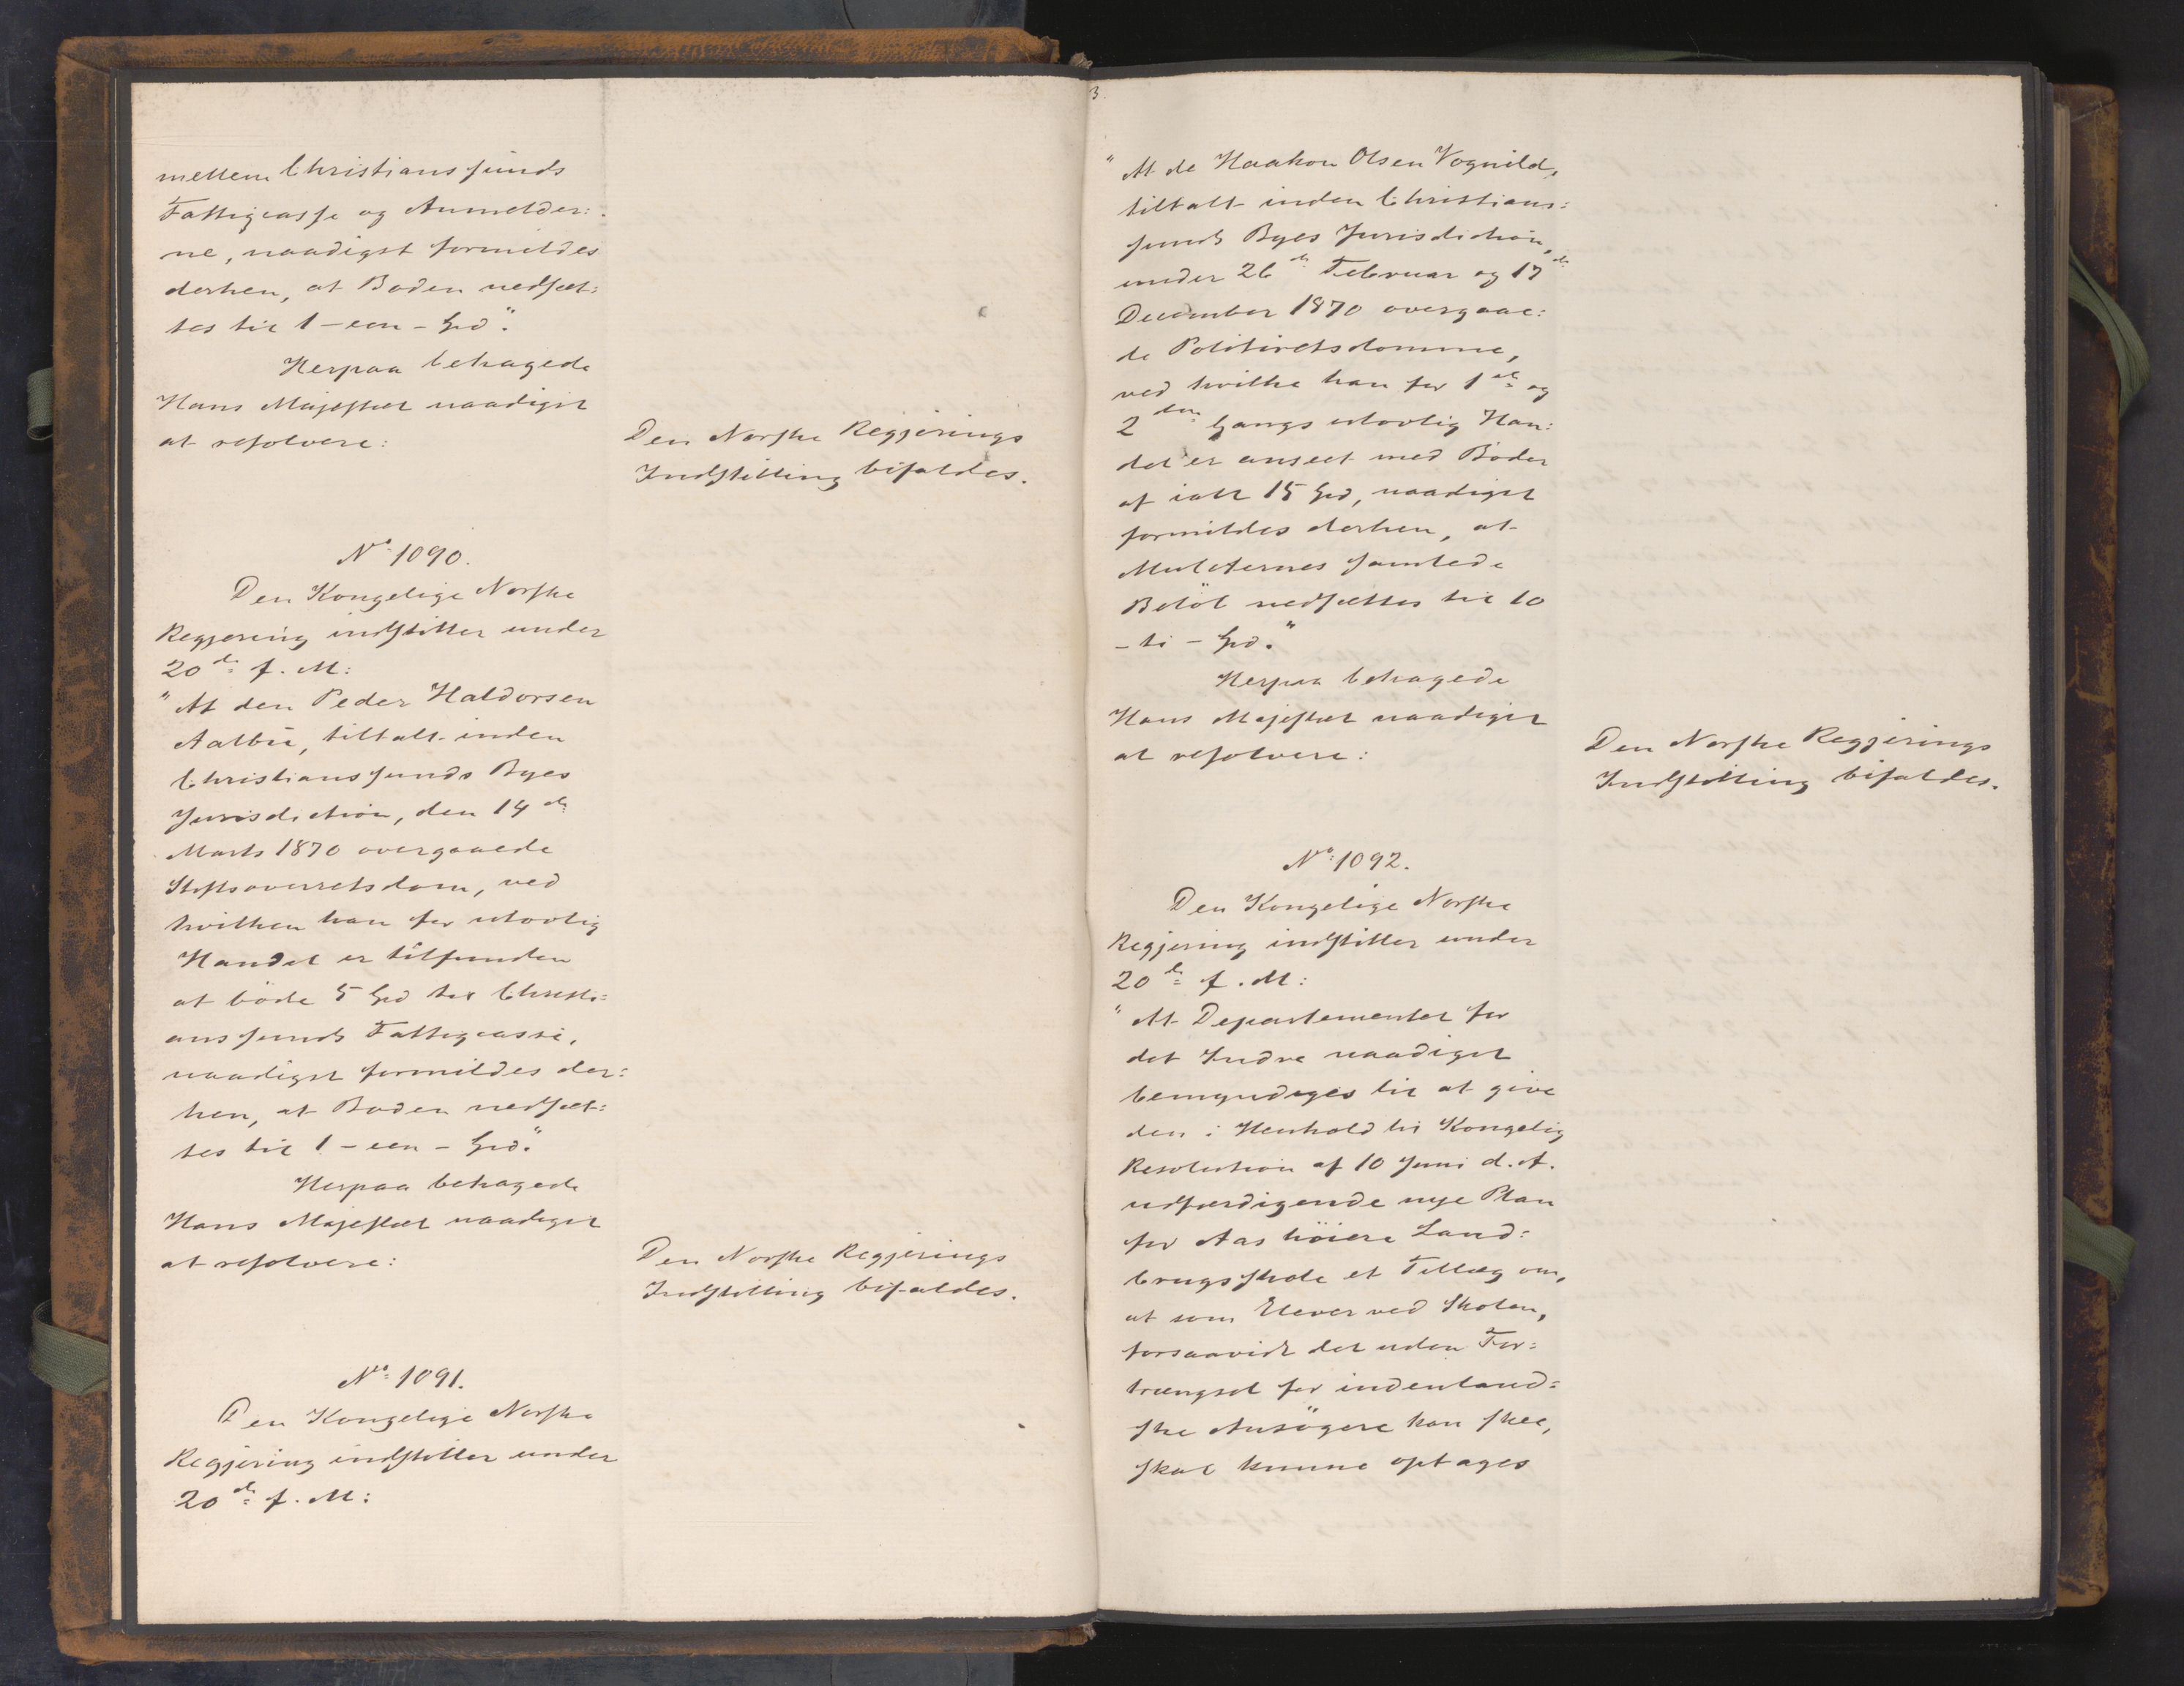 mellem Christianssunds
Fattigcasse og Anmelder:
ne, naadigst formildes
derhen, at Boden nedsæt:
tes til 1 - een - Spd."
Herpaa behagede
Hans Majestæt naadigst
at resolvere:
Den Norske Regjerings
Indstilling bifaldes.
No 1090.
Den Kongelige Norske
Regjering indstiller under
20de f. M:
"At den Peder Haldorsen
Aalbu, tiltalt inden
Christianssunds Byes
Jurisdiction, den 14de
Marts 1870 overgaaede
Stiftsoverretsdom, ved
hvilken han for ulovlig
Handel er tilfunden
at böde 5 Spd til Christi=
anssunds Fattigcasse,
naadigst formildes der:
hen, at Boden nedsæt:
tes til 1 - een - Spd."
Herpaa behagede
Hans Majestæt naadigst
at resolvere:
Den Norske Regjerings
Indstilling bifaldes.
No 1091.
Den Kongelige Norske
Regjering indstiller under
20de f. M:
3
"At de Haakon Olsen Vognild,
tiltalt inden Christians:
sunds Byes Jurisdiction,
under 26de Februar og 17de
December 1870 overgaae:
de Politiretsdomme,
ved hvilke han for 1ste og
2den Gangs ulovlig Han:
del er anseet med Böder
af ialt 15 Spd, naadigst
formildes derhen, at
Mulcternes samlede
Belöb nedsættes til 10
- ti - Spd."
Herpaa behagede
Hans Majestæt naadigst
at resolvere:
Den Norske Regjerings
Indstilling bifaldes.
No 1092.
Den Kongelige Norske
Regjering indstiller under
20de f. M:
"At Departementet for
det Indre naadigst
bemyndiges til at give
den i Henhold til Kongelig
Resolution af 10 Juni d. A.
udfærdigende nye Plan
for Aas höiere Land:
brugsskole et Tillæg om,
at som Elever ved Skolen,
forsaavidt det uden For=
trængsel for indenland=
ske Ansögere kan skee,
skal kunne optages